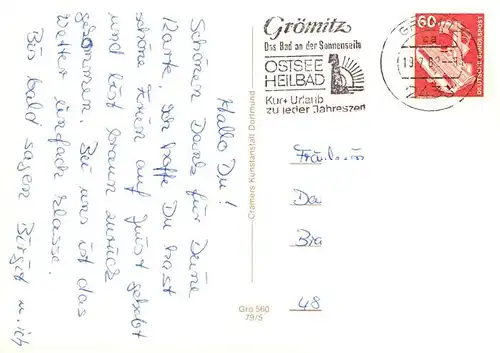 Grömitz
Das Bad an der Sonnenseite
OSTSEE
HEILBAD
Kur + Urlaub
zu jeder Jahreszeit
60
DEUTSCHE BUNDESPOST
Hallo Du!
Schönen Dank für Deine
Karte, Ich hoffe Du hast
schöne Ferien auf Juist gehabt
und bist braun zurück
gekommen. Bei uns ist das
Wetter einfach klasse.
Bis bald sagen Birgit u. ich
Cramers Kunstanstalt Dortmund
Gro 560
79/5
Fräulein
Da
Bra
48